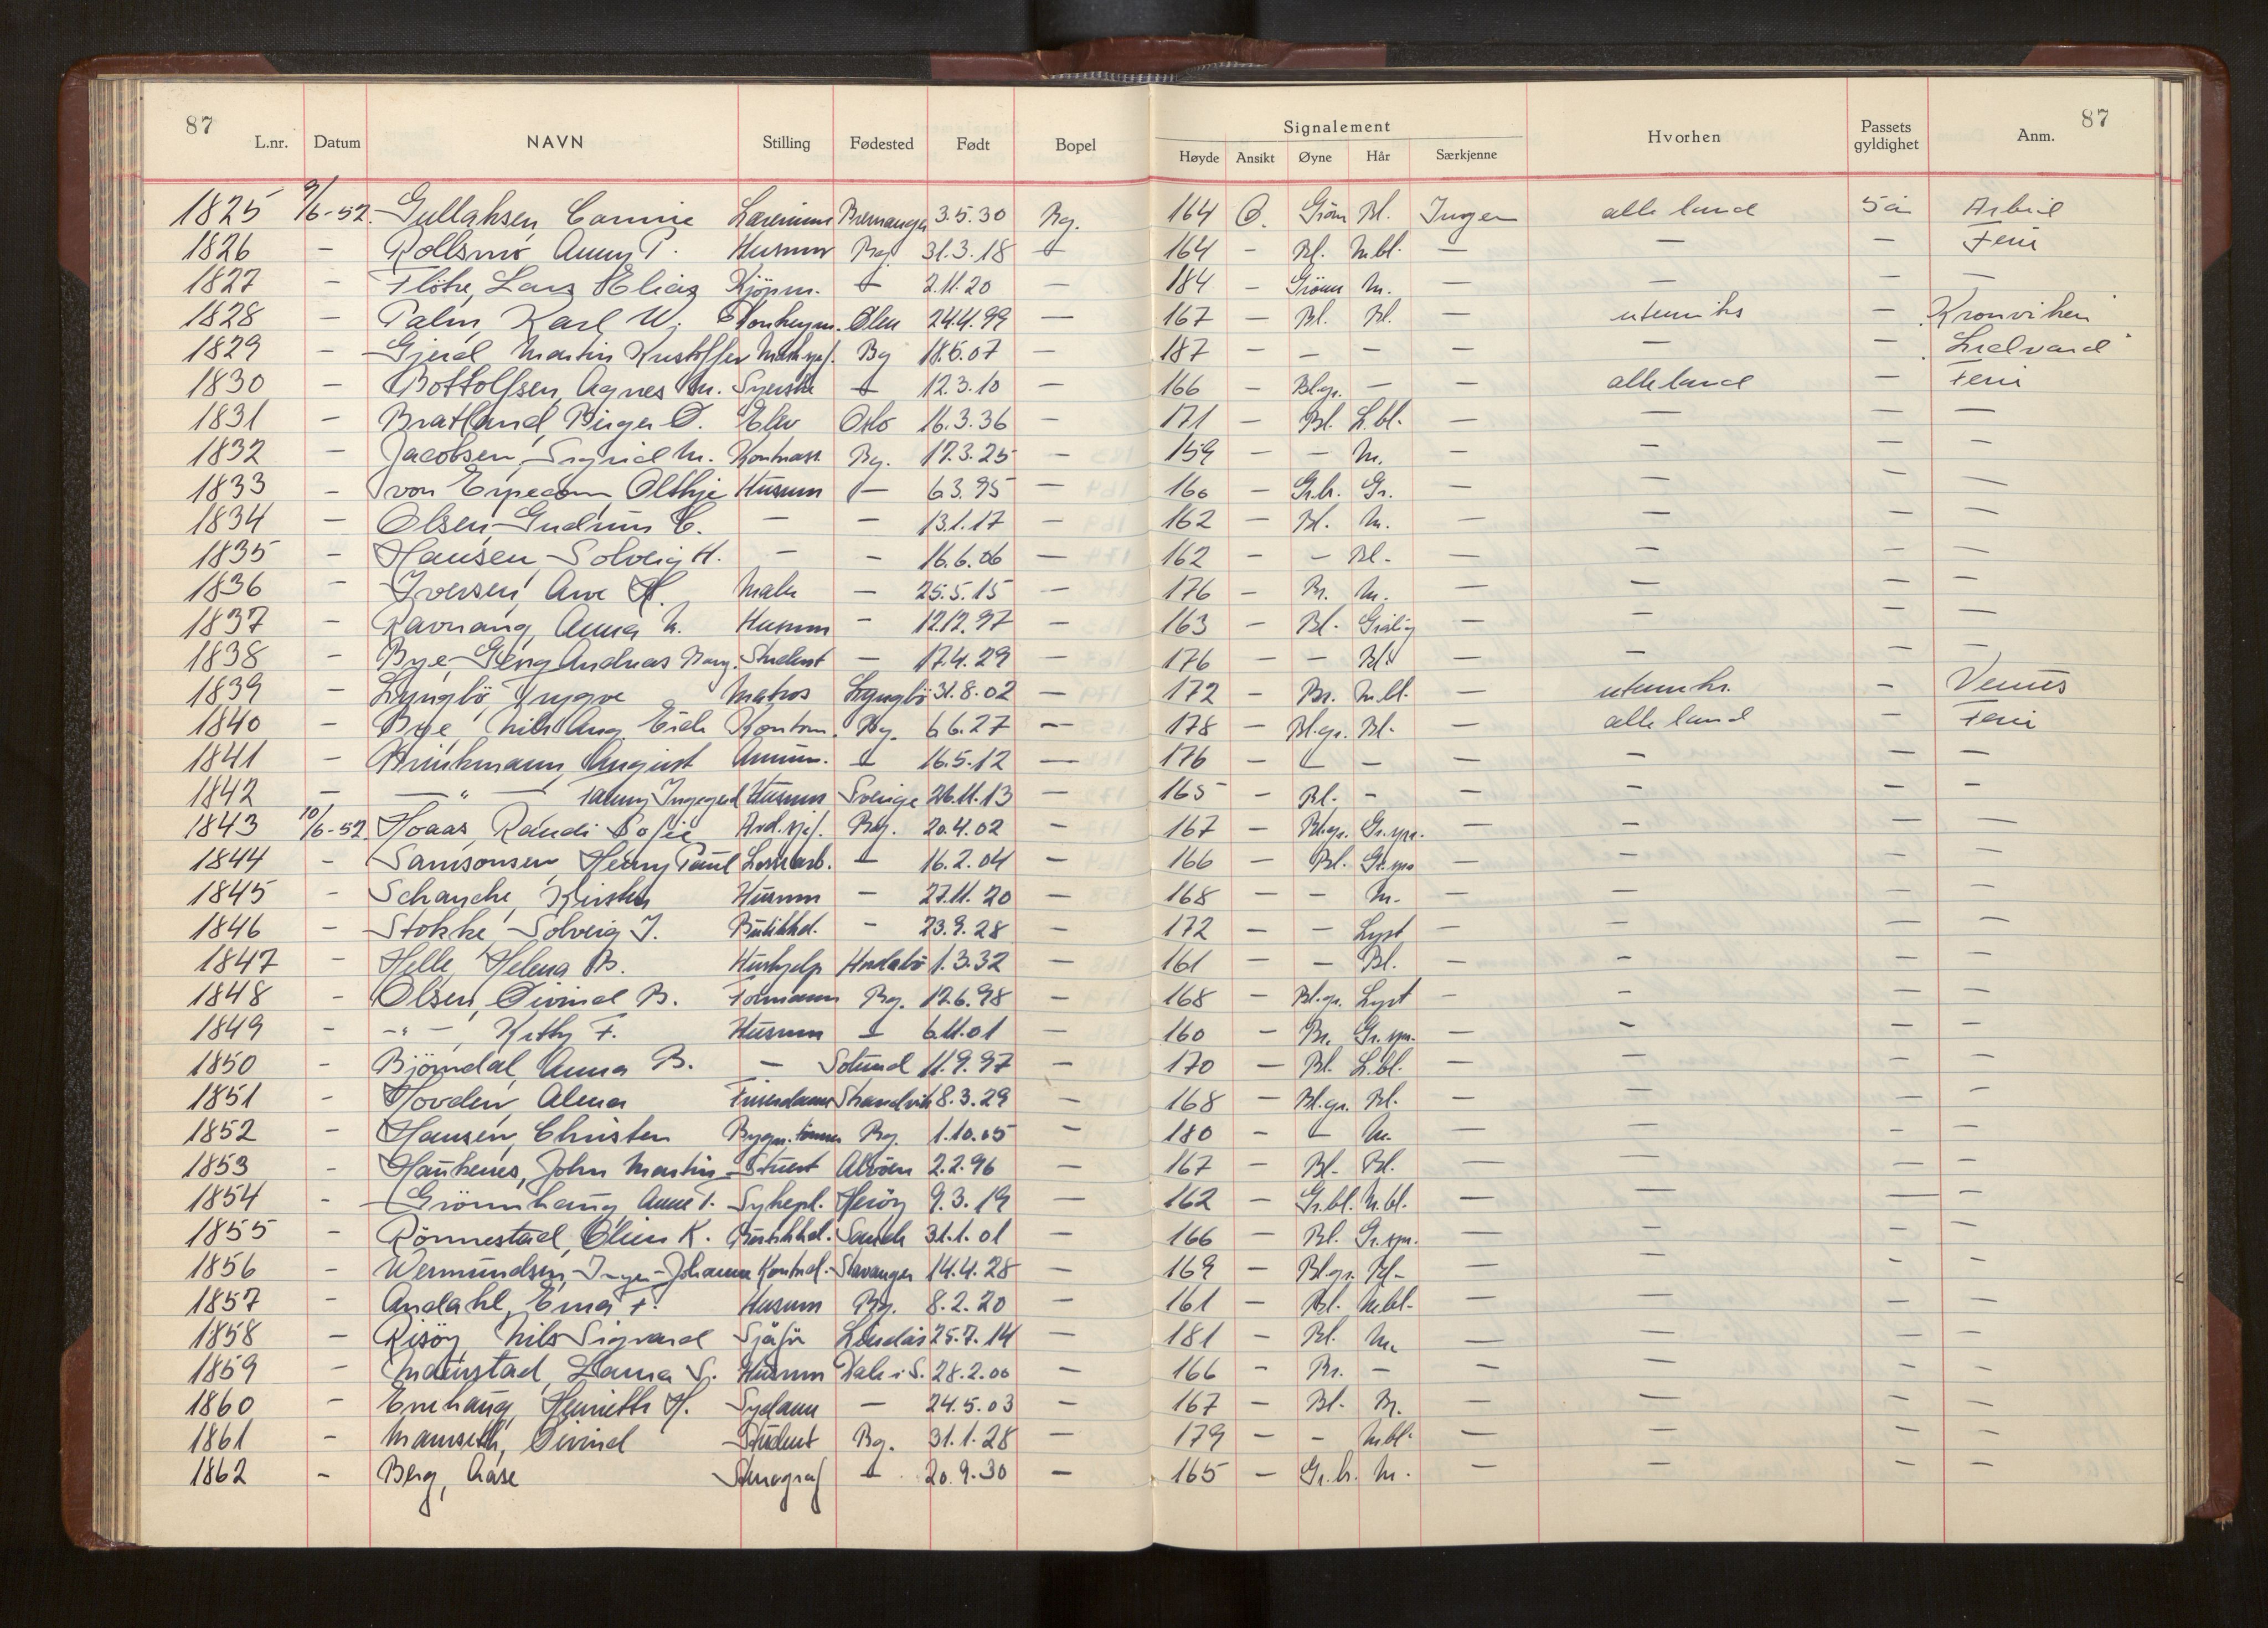 87 87
Signalement
L.nr. Datum NAVN Stilling Fødested Født Bopel Høyde Ansikt Øyne Hår Særkjenne Hvorhen Passets gyldighet Anm.
1825 9/6-52 Gullaksen, Lærerinne Bremanger 3.5.30 Bg. 164 O. Grønn Bl. Ingen alle land 5 år Arbeid
1826 - Rollsmo Anny P. Husmor Bg. 31.3.18 - 164 - Bl. M.bl. - - - Ferie
1827 - Fløtre, Lars Elias Kjøpm. - 2.11.20 - 184 - Grønn M. - - - -
1828 - Palm, Karl W. Ølen 24.4.99 - 167 - Bl. Bl. - utenriks - "Kronviken"
1829 - Gjerd, Martin Kristoffer Mask.sjef. Bg 18.6.07 - 187 - - - - - - "
1830 - Bottolfsen, Agnes M. Syerske - 12.3.10 - 166 - Bl.gr. - - alle land - Ferie
1831 - Bratland, Birger O. Elev Oslo 16.3.36 - 171 - Bl. L.bl. - - - -
1832 - Jacobsen, Sigrid M. Kontorass. Bg. 17.3.25 - 159 - - M. - - - -
1833 - von Erpecom Husmor - 6.3.95 - 160 - Gr.br. Gr. - - - -
1834 - Olsen, Gudrun C. - - 13.1.17 - 162 - Bl. M. - - - -
1835 - Hansen, Solveig H. - - 16.6.06 - 162 - - Bl. - - - -
1836 - Iversen, Arve H. Maler - 25.5.15 - 176 - Br. M. - - - -
1837 - Ravnang, Anna M. Husmor - 12.12.97 - 163 - Bl. Grålig - - - -
1838 - Bye, Georg Andreas Student - 17.4.29 - 176 - - Bl. - - - -
1839 - Lyngbø, Trygve Matros Lyngbø 31.8.02 - 172 - Br. M.bl. - utenriks. - Venus
1840 - Bye, Nils Aug. Erik Kontorm. Bg. 6.6.27 - 178 - Bl.gr. Bl. - alle land - Ferie
1841 - Brinkmann, August - 16.5.12 - 176 - - - - - - -
1842 - - " - Fanny Ingegerd Husmor Sverige 26.11.13 - 165 - Bl. - - - - -
1843 10/6-52 Hoaas, Randi Sofie Avd.sjef. Bg. 20.4.02 - 167 - Bl.gr. Gr.spr. - - - -
1844 - Samsonsen, Henry Paul Lossearb. - 16.2.04 - 166 - Bl. Gr.spr - - - -
1845 - Schanche, Kirsten Husmor - 27.11.20 - 168 - - M. - - - -
1846 - Stokke, Solveig J. Butikkd. - 23.9.28 - 172 - - Lyst - - - -
1847 - Helle, Helena B. Hushjelp Hordabø 1.3.32 - 161 - - Bl. - - - -
1848 - Olsen, Øivind B. Formann Bg. 12.6.98 - 168 - Bl.gr. Lyst - - - -
1849 - - " - , Kitty F. Husmor - 6.11.01 - 160 - Br. Gr.spr. - - - -
1850 - Bjørndal, Anna B. - Solund 11.9.97 - 170 - Bl. L.bl. - - - -
1851 - Hovden, Alma Frisérdame Strandvik 8.3.29 - 168 - Bl.gr. Bl. - - - -
1852 - Hansen, Christen Bygn.tømrer Bg. 1.10.05 - 180 - - M. - - - -
1853 - Haukenes, John Martin Stuert Alvøen 2.2.96 - 167 - Bl. Bl. - - - -
1854 - Grønnhaug, Anne T. Sykepl. Herøy 9.3.19 - 162 - Gr.bl. M.bl. - - - -
1855 - Rønnestad, K. Butikkd. Sande 31.1.01 - 166 - Bl. Gr.spr. - - - -
1856 - Wermundsen, Inger-Johanne Kontord. Stavanger 14.4.28 - 169 - Bl.gr. Bl. - - - -
1857 - Andahl, Erna F. Husmor Bg. 8.2.20 - 161 - Bl. M.bl. - - - -
1858 - Risøy, Nils Sigvard Sjåfør Lindås 25.7.14 - 181 - Bl. M. - - - -
1859 - Maurstad, Laura S. Husmor Dale i S. 28.2.00 - 166 - Br. - - - - -
1860 - Enehaug, Henriette H. Sydame - 24.5.03 - 167 - Bl. Br. - - - -
1861 - Øivind Student Bg. 31.1.28 - 179 - - M.bl. - - - -
1862 - Berg, Aase Stenograf - 20.9.30 - 165 - Gr.br. M. - - - -